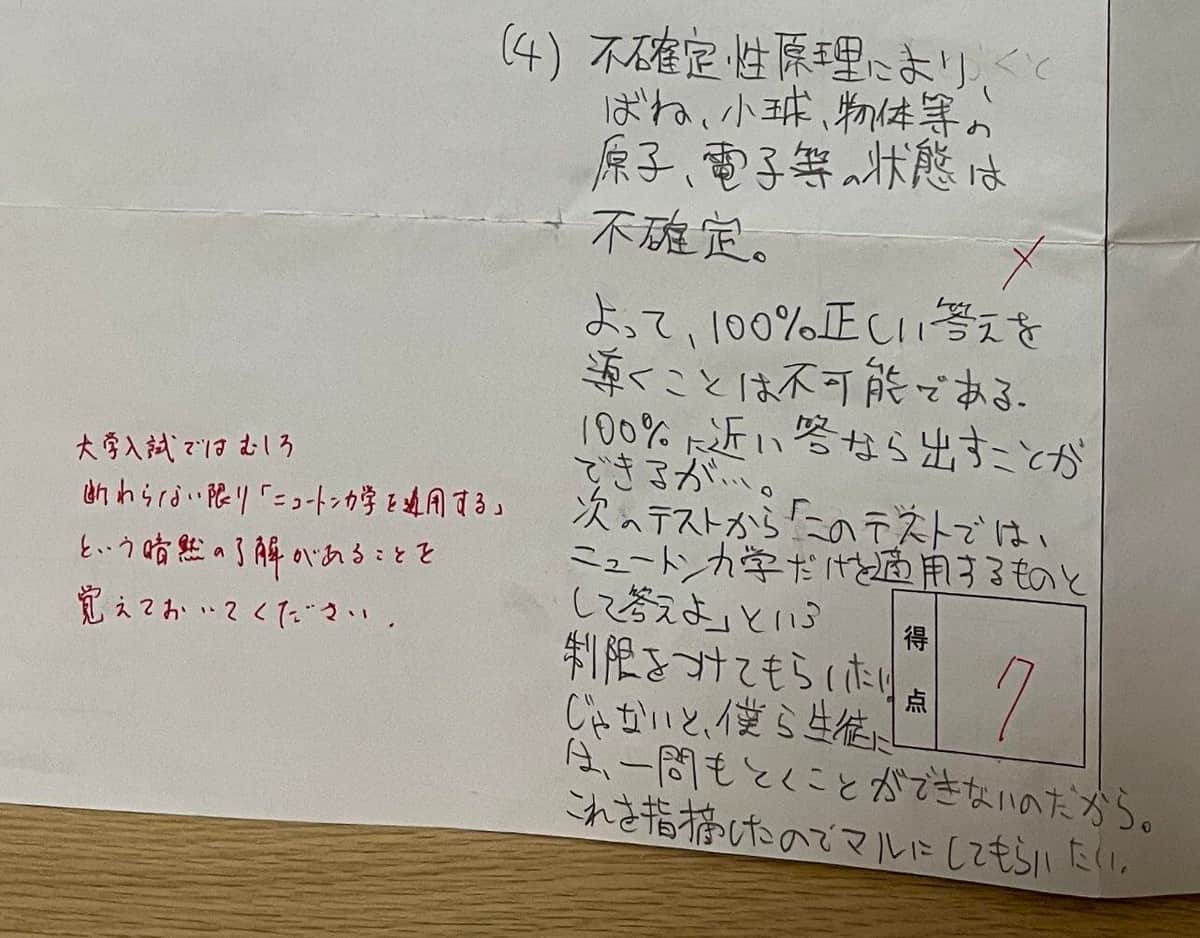 (4) 不確定性原理により、
ばね、小球、物体等の
原子、電子等の状態は
不確定。
よって、100%正しい答えを
導くことは不可能である。
100%に近い答なら出すことが
できるが…。
次のテストから「このテストでは、
ニュートン力学だけを適用するものと
して答えよ」という
制限をつけてもらいたい。
じゃないと、僕ら生徒に
は、一問もとくことができないのだから。
これを指摘したのでマルにしてもらいたい。
大学入試ではむしろ
断わらない限り「ニュートン力学を適用する」
という暗黙の了解があることを
覚えておいてください.
得点
7